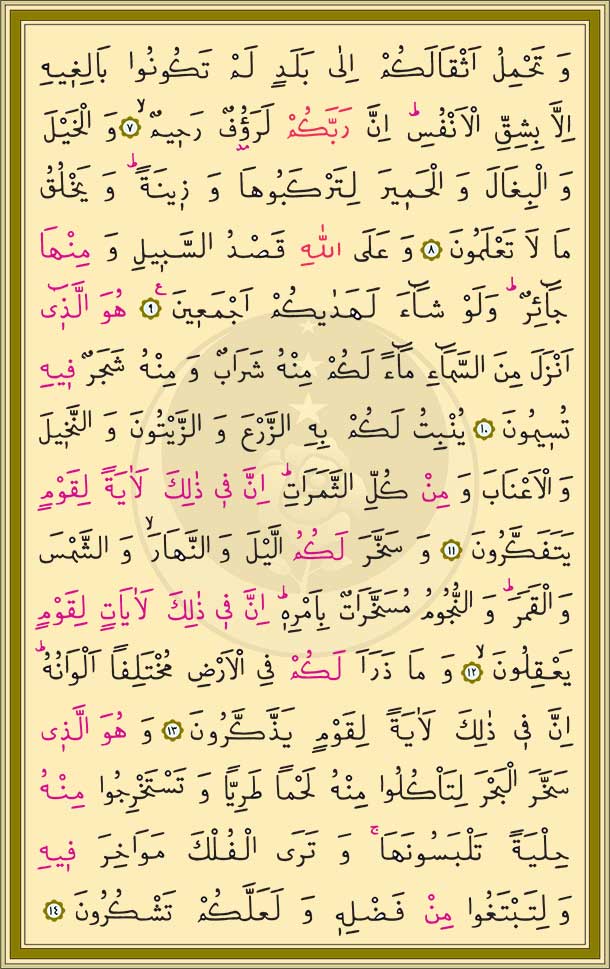 وَ تَحْمِلُ اَثْقَالَكُمْ اِلٰى بَلَدٍ لَمْ تَكُونُوا بَالِغ۪يهِ
اِلَّا بِشِقِّ الْاَنْفُسِۜ اِنَّ رَبَّكُمْ لَرَؤُ۫فٌ رَح۪يمٌۙ ﴿٧﴾ وَ الْخَيْلَ
وَ الْبِغَالَ وَ الْحَم۪يرَ لِتَرْكَبُوهَا وَ ز۪ينَةًۜ وَ يَخْلُقُ
مَا لَا تَعْلَمُونَ ﴿٨﴾ وَ عَلَى اللّٰهِ قَصْدُ السَّب۪يلِ وَ مِنْهَا
جَٓائِرٌۜ وَلَوْ شَٓاءَ لَهَدٰيكُمْ اَجْمَع۪ينَ۟ ﴿٩﴾ هُوَ الَّذ۪ٓي
اَنْزَلَ مِنَ السَّمَٓاءِ مَٓاءً لَكُمْ مِنْهُ شَرَابٌ وَ مِنْهُ شَجَرٌ ف۪يهِ
تُس۪يمُونَ ﴿١٠﴾ يُنْبِتُ لَكُمْ بِهِ الزَّرْعَ وَ الزَّيْتُونَ وَ النَّخ۪يلَ
وَ الْاَعْنَابَ وَ مِنْ كُلِّ الثَّمَرَاتِۜ اِنَّ ف۪ي ذٰلِكَ لَاٰيَةً لِقَوْمٍ
يَتَفَكَّرُونَ ﴿١١﴾ وَ سَخَّرَ لَكُمُ الَّيْلَ وَ النَّهَارَۙ وَ الشَّمْسَ
وَ الْقَمَرَۜ وَ النُّجُومُ مُسَخَّرَاتٌ بِاَمْرِه۪ۜ اِنَّ ف۪ي ذٰلِكَ لَاٰيَاتٍ لِقَوْمٍ
يَعْقِلُونَۙ ﴿١٢﴾ وَ مَا ذَرَاَ لَكُمْ فِي الْاَرْضِ مُخْتَلِفاً اَلْوَانُهُۜ
اِنَّ ف۪ي ذٰلِكَ لَاٰيَةً لِقَوْمٍ يَذَّكَّرُونَ ﴿١٣﴾ وَ هُوَ الَّذ۪ي
سَخَّرَ الْبَحْرَ لِتَاْكُلُوا مِنْهُ لَحْماً طَرِياًّ وَ تَسْتَخْرِجُوا مِنْهُ
حِلْيَةً تَلْبَسُونَهَاۚ وَ تَرَى الْفُلْكَ مَوَاخِرَ ف۪يهِ
وَ لِتَبْتَغُوا مِنْ فَضْلِه۪ وَ لَعَلَّكُمْ تَشْكُرُونَ ﴿١٤﴾